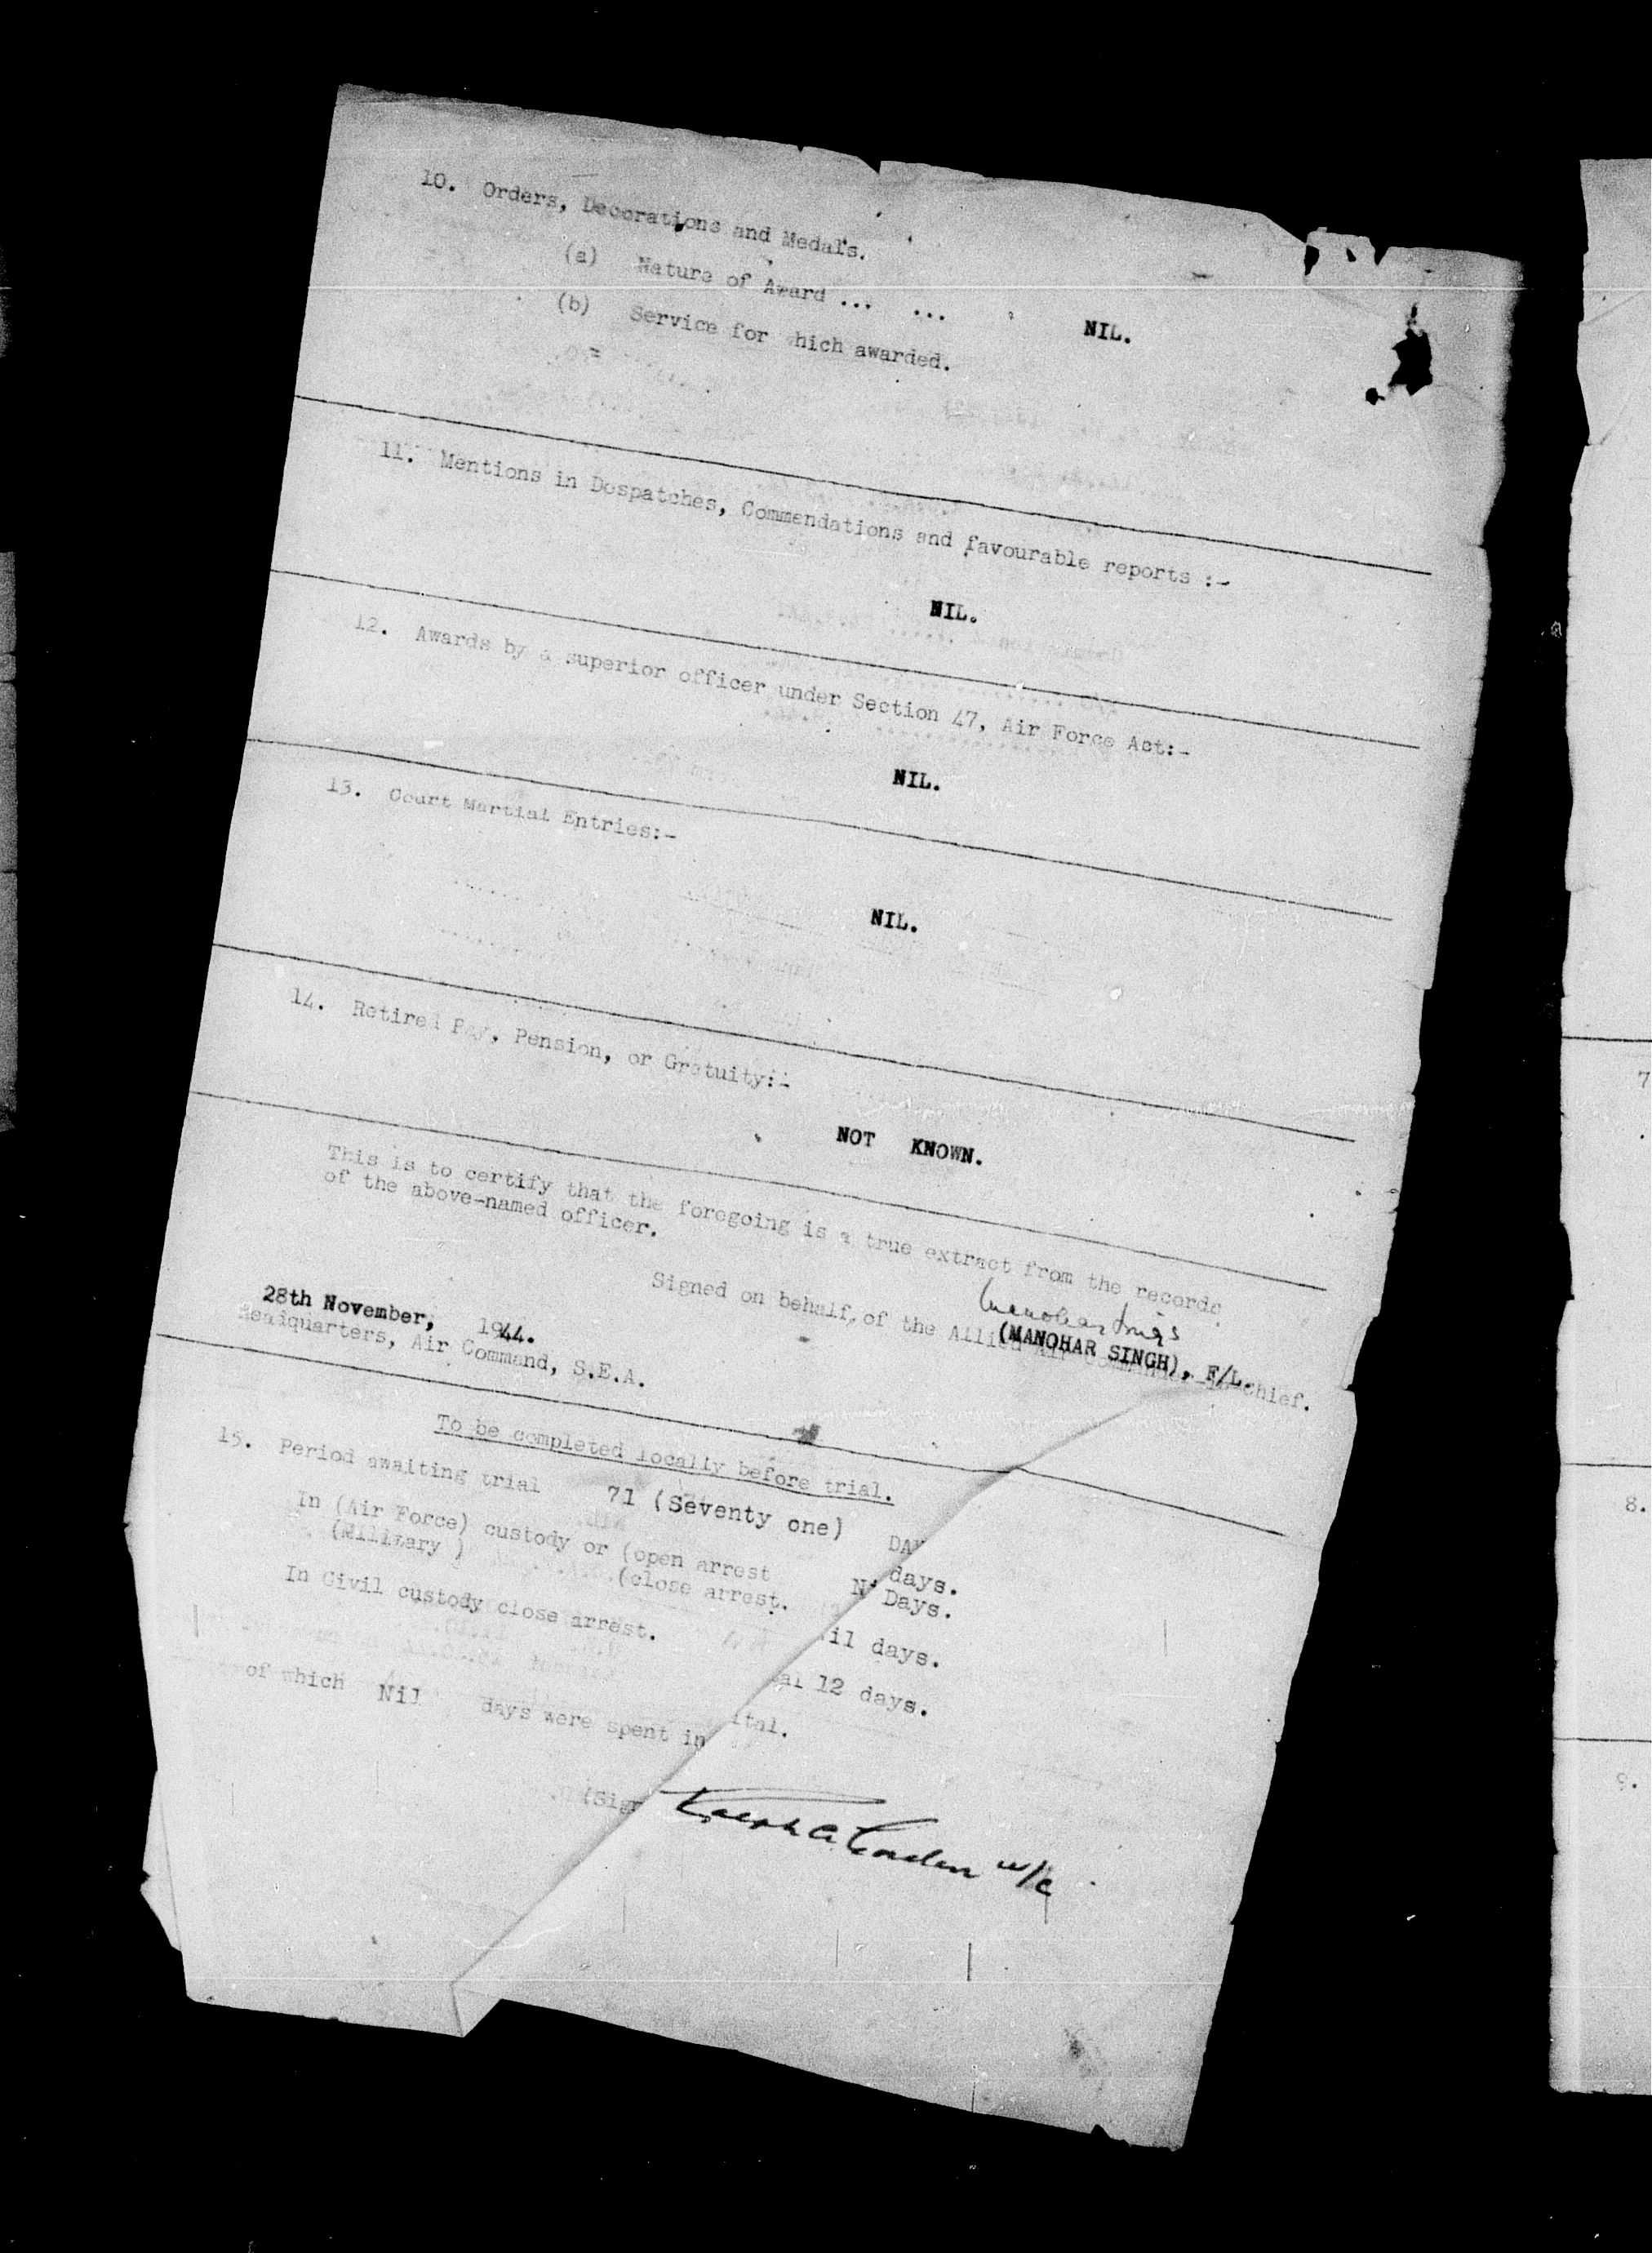 10. Orders, Decorations and Medals.
(a) Nature of Award ... ... NIL.
(b) Service for which awarded.
11. Mentions in Despatches, Commendations and favourable reports :-
NIL.
12. Awards by a superior officer under Section 47, Air Force Act:-
NIL.
13. Court Martial Entries:-
NIL.
14. Retired Pay, Pension, or Gratuity:-
NOT KNOWN.
This is to certify that the foregoing is a true extract from the records
of the above-named officer.
Manohar Singh
(MANOHAR SINGH), F/L.
Signed on behalf of the Allied Air Commander-in-Chief.
28th November, 1944.
Headquarters, Air Command, S.E.A.
To be completed locally before trial.
15. Period awaiting trial 71 (Seventy one) DAY
In (Air Force) custody or (open arrest days.
(Military ) (close arrest. Days.
In Civil custody close arrest. il days.
al 12 days.
of which Nil days were spent in ital.
(Sign
W/C
7
8.
9.